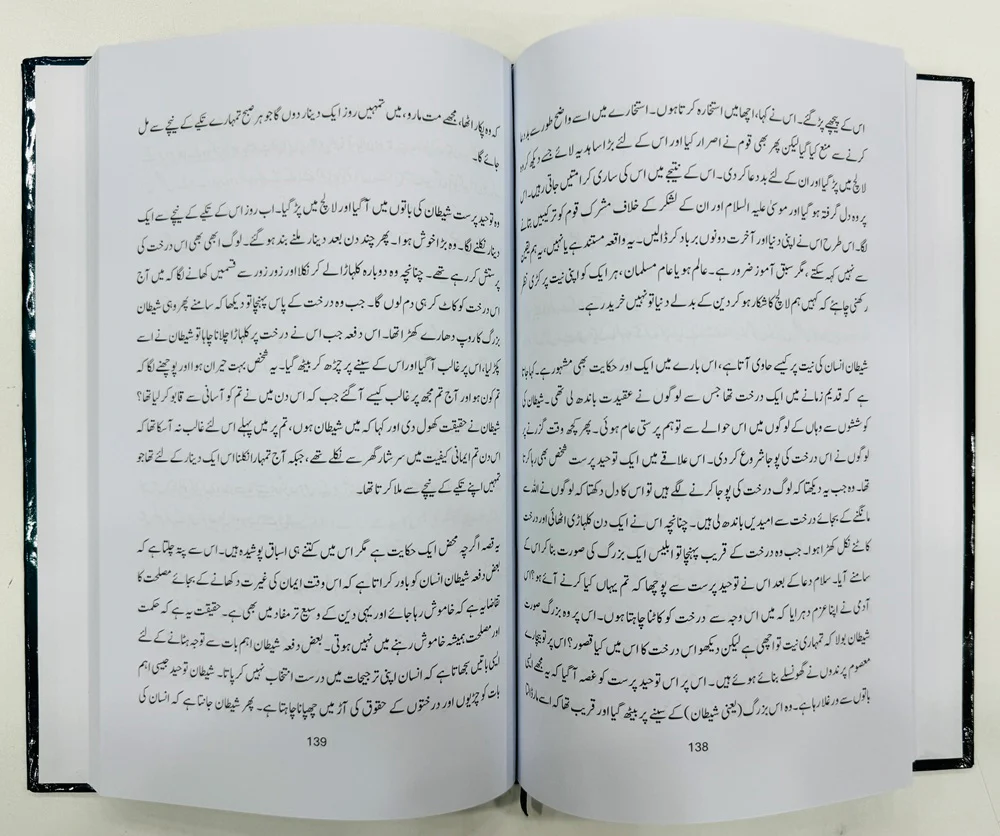 اس کے پیچھے پڑ گئے۔ اس نے کہا، اچھا میں استخارہ کرتا ہوں۔ استخارے میں اسے واضح طور سے
کرنے سے منع کیا گیا لیکن پھر بھی قوم نے اصرار کیا اور اس کے لئے بڑا سا ہدیہ لائے جسے دیکھ کر وہ
لالچ میں پڑ گیا اور ان کے لئے بددعا کر دی۔ اس کے نتیجے میں اس کی ساری کرامتیں جاتی رہیں۔ اس
پر وہ دل گرفتہ ہو گیا اور موسیٰ علیہ السلام اور ان کے لشکر کے خلاف مشرک قوم کو ترکیبیں بتانے
لگا۔ اس طرح اس نے اپنی دنیا اور آخرت دونوں برباد کر ڈالیں۔ یہ واقعہ مستند ہے یا نہیں، یہ ہم یقین
سے نہیں کہہ سکتے ، مگر سبق آموز ضرور ہے۔ عالم ہو یا عام مسلمان، ہر ایک کو اپنی نیت پر کڑی نظر
رکھنی چاہئے کہ کہیں ہم لالچ کا شکار ہو کر دین کے بدلے دنیا تو نہیں خرید رہے۔
شیطان انسان کی نیت پر کیسے حاوی آتا ہے، اس بارے میں ایک اور حکایت بھی مشہور ہے۔ کہا جاتا
ہے کہ قدیم زمانے میں ایک درخت تھا جس سے لوگوں نے عقیدت باندھ لی تھی۔ شیطان کی
کوششوں سے وہاں کے لوگوں میں اس حوالے سے توہم پرستی عام ہوئی۔ پھر کچھ وقت گزرنے پر
لوگوں نے اس درخت کی پوجا شروع کر دی۔ اس علاقے میں ایک توحید پرست شخص بھی رہا کرتا
تھا۔ وہ جب یہ دیکھتا کہ لوگ درخت کی پوجا کرنے لگے ہیں تو اس کا دل دکھتا کہ لوگوں نے اللہ سے
مانگنے کے بجائے درخت سے امیدیں باندھ لی ہیں۔ چنانچہ اس نے ایک دن کلہاڑی اٹھائی اور درخت
کاٹنے نکل کھڑا ہوا۔ جب وہ درخت کے قریب پہنچا تو ابلیس ایک بزرگ کی صورت بنا کر اس کے
سامنے آیا۔ سلام دعا کے بعد اس نے توحید پرست سے پوچھا کہ تم یہاں کیا کرنے آئے ہو؟ اس
آدمی نے اپنا عزم دہرایا کہ میں اس وجہ سے درخت کو کاٹنا چاہتا ہوں۔ اس پر وہ بزرگ صورت
شیطان بولا کہ تمہاری نیت تو اچھی ہے لیکن دیکھو اس درخت کا اس میں کیا قصور؟ اس پر تو بیچارے
معصوم پرندوں نے گھونسلے بنائے ہوئے ہیں۔ اس پر اس توحید پرست کو غصہ آ گیا کہ یہ مجھے ایسی
باتوں سے ورغلا رہا ہے۔ وہ اس بزرگ (یعنی شیطان) کے سینے پر بیٹھ گیا اور قریب تھا کہ اسے مار ڈالتا
138
کہ وہ پکار اٹھا، مجھے مت مارو، میں تمہیں روز ایک دینار دوں گا جو ہر صبح تمہارے تکیے کے نیچے سے مل
جائے گا۔
وہ توحید پرست شیطان کی باتوں میں آ گیا اور لالچ میں پڑ گیا۔ اب روز اس کے تکیے کے نیچے سے ایک
دینار نکلنے لگا۔ وہ بڑا خوش ہوا۔ پھر چند دن بعد دینار ملنے بند ہو گئے۔ لوگ ابھی بھی اس درخت کی
پرستش کر رہے تھے۔ چنانچہ وہ دوبارہ کلہاڑا لے کر نکلا اور زور زور سے قسمیں کھانے لگا کہ میں آج
اس درخت کو کاٹ کر ہی دم لوں گا۔ جب وہ درخت کے پاس پہنچا تو دیکھا کہ سامنے پھر وہی شیطان
بزرگ کا روپ دھارے کھڑا تھا۔ اس دفعہ جب اس نے درخت پر کلہاڑا چلانا چاہا تو شیطان نے اسے
پکڑ لیا، اس پر غالب آ گیا اور اس کے سینے پر چڑھ کر بیٹھ گیا۔ یہ شخص بہت حیران ہوا اور پوچھنے لگا کہ
تم کون ہو اور آج تم مجھ پر غالب کیسے آ گئے جب کہ اس دن میں نے تم کو آسانی سے قابو کر لیا تھا؟
شیطان نے حقیقت کھول دی اور کہا کہ میں شیطان ہوں، تم پر میں پہلے اس لئے غالب نہ آ سکا تھا کہ
اس دن تم ایمانی کیفیت میں سرشار گھر سے نکلے تھے، جبکہ آج تمہارا نکلنا اس ایک دینار کے لئے تھا جو
تمہیں اپنے تکیے کے نیچے سے ملا کرتا تھا۔
یہ قصہ اگرچہ محض ایک حکایت ہے مگر اس میں کتنے ہی اسباق پوشیدہ ہیں۔ اس سے پتہ چلتا ہے کہ
بعض دفعہ شیطان انسان کو باور کراتا ہے کہ اس وقت ایمان کی غیرت دکھانے کے بجائے مصلحت کا
تقاضا یہ ہے کہ خاموش رہا جائے اور یہی دین کے وسیع تر مفاد میں بھی ہے۔ حقیقت یہ ہے کہ حکمت
اور مصلحت ہمیشہ خاموش رہنے میں نہیں ہوتی۔ بعض دفعہ شیطان اہم بات سے توجہ ہٹانے کے لئے
ایسی باتیں سجھاتا ہے کہ انسان اپنی ترجیحات میں درست انتخاب نہیں کر پاتا۔ شیطان توحید جیسی اہم
بات کو چڑیوں اور درختوں کے حقوق کی آڑ میں چھپانا چاہتا ہے۔ پھر شیطان جانتا ہے کہ انسان کی
139